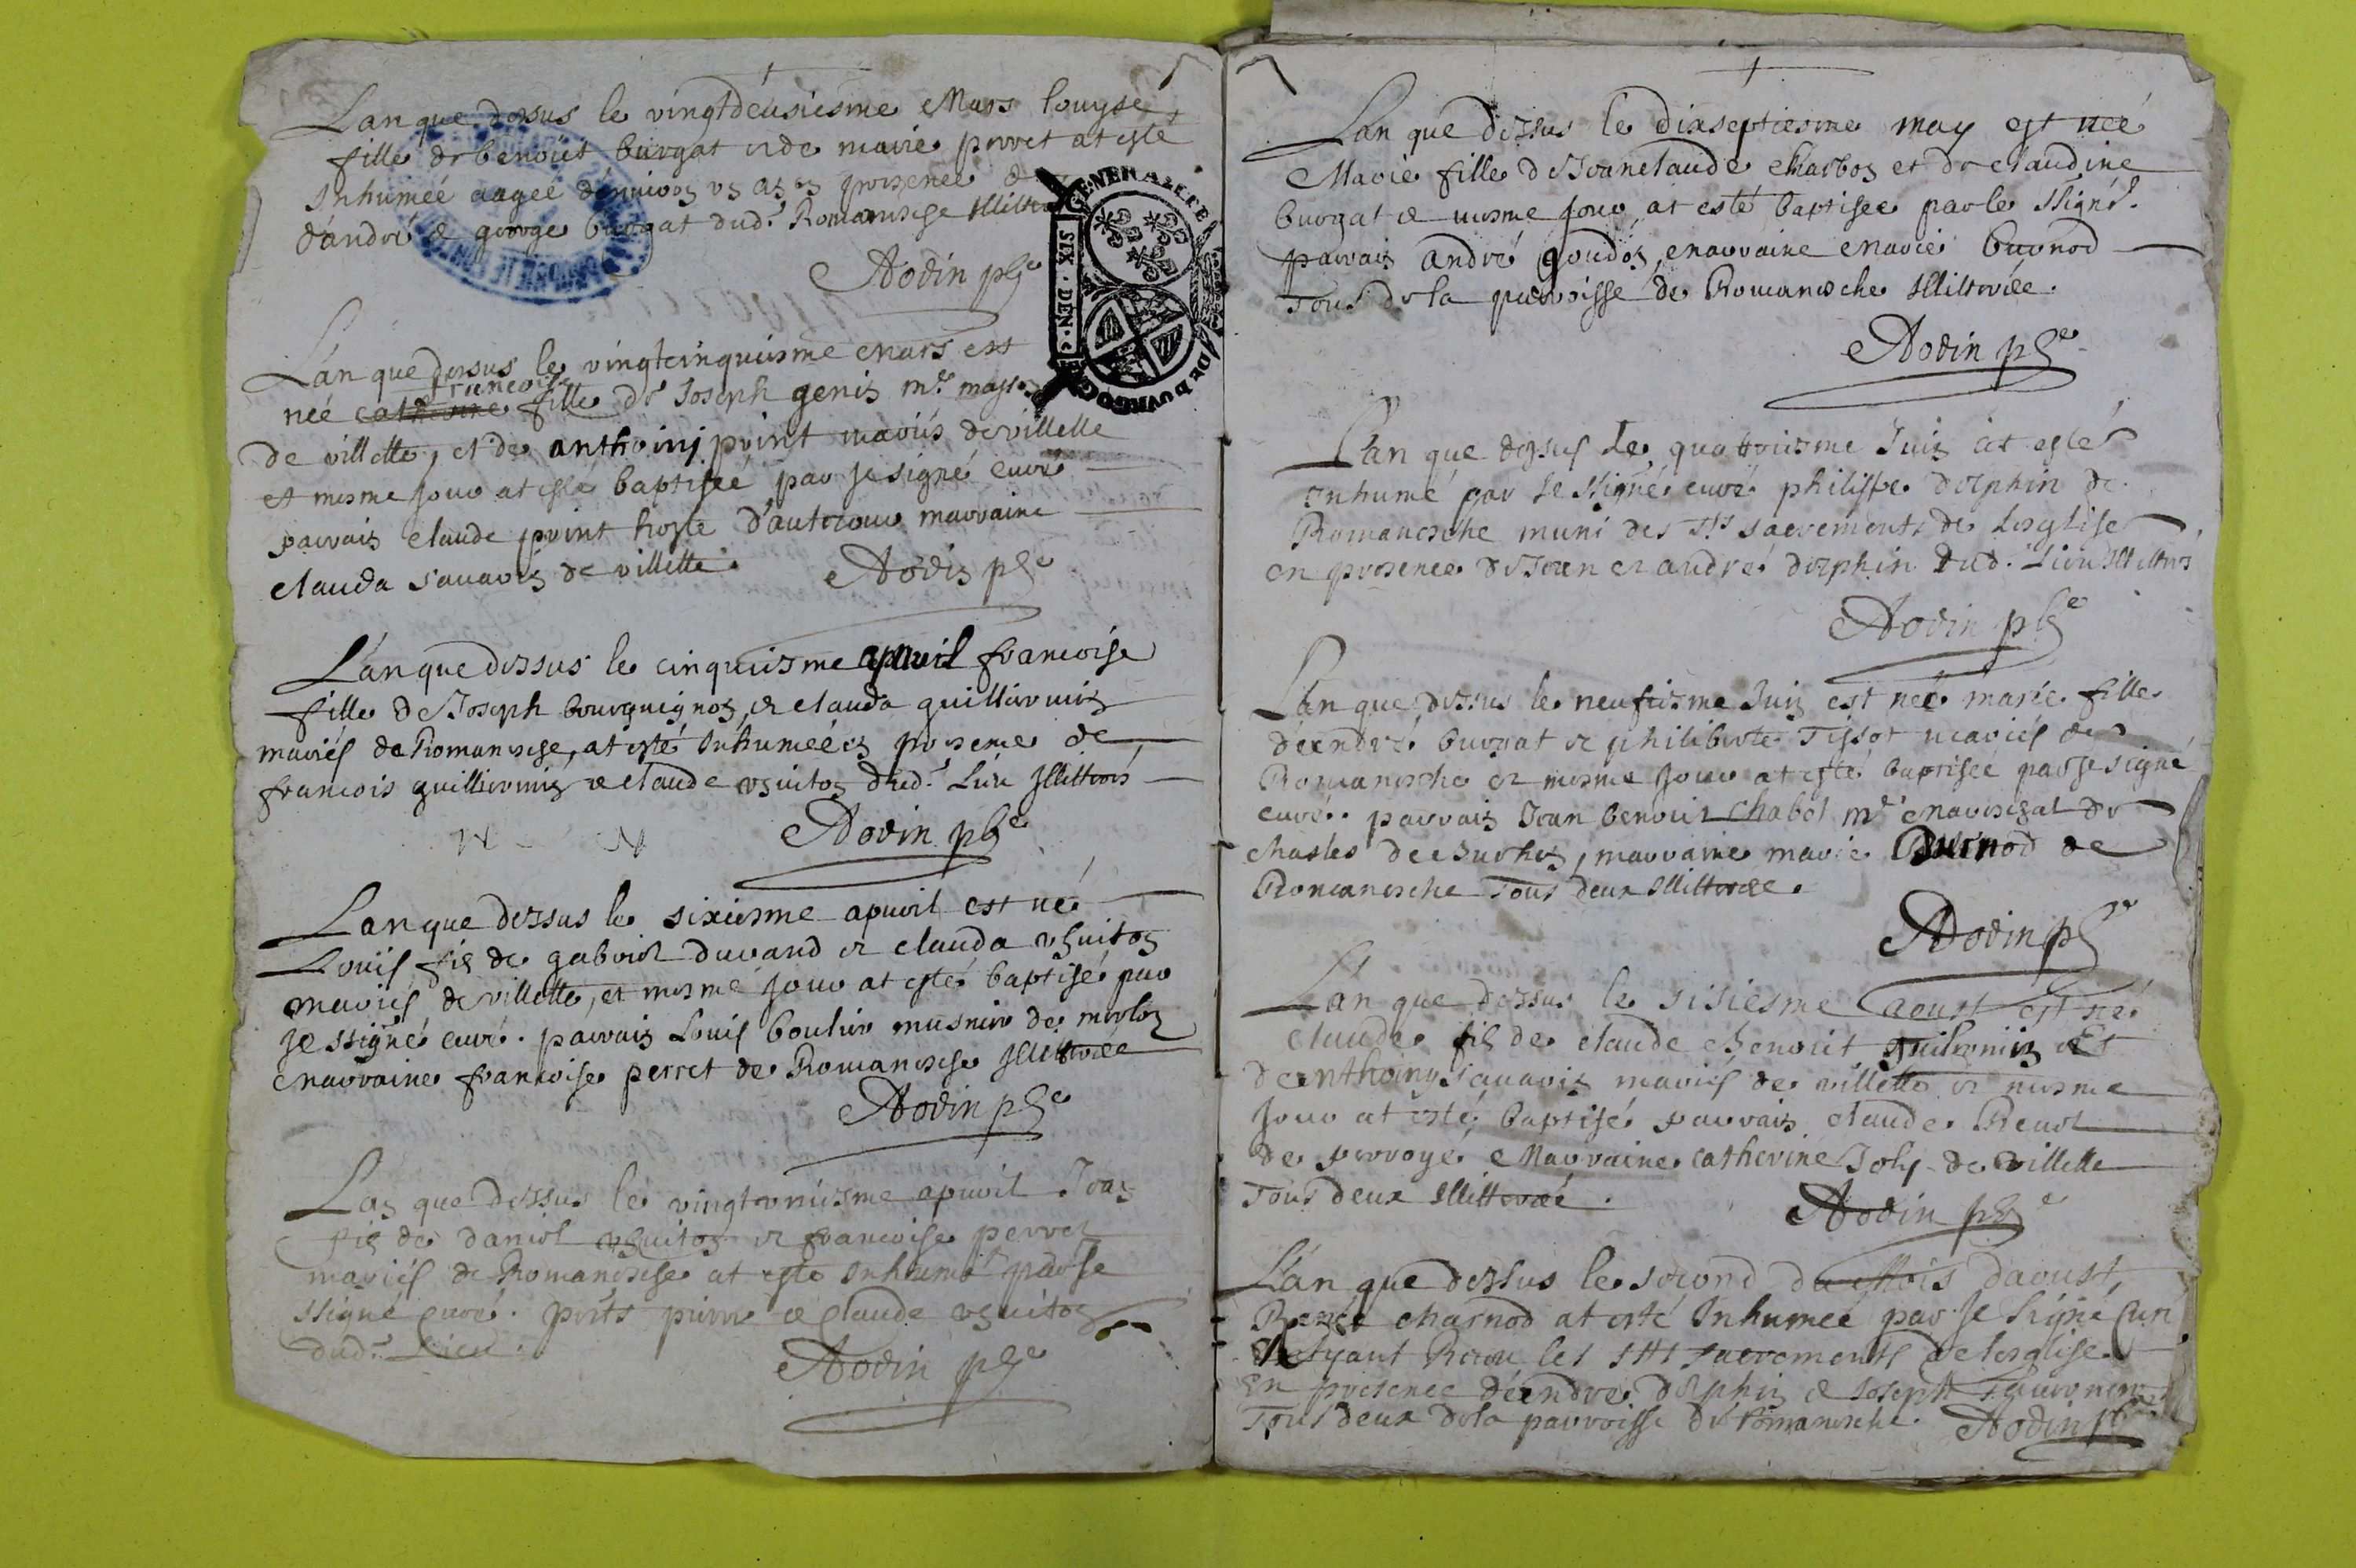 Lan que dessus le vingtdeusiesme Mars louyse
fille de benoist burgat et de marie perret at esté
Inhumée aagée denviron un an en presence de
d'andré et george burgat dud.t Romanesche Illitterés
Aodin pbre
GENERALITE DE BOURGOGNE
SIX. DEN.
Lan que dessus le vingtcinquiesme mars est
francoise
née catherine fille de Joseph genin m.re
de villette, et de anthoin point mariés de villette
et mesme jour at esté baptisée par Je signé curé
parrain claude point hoste d'autecour marraine
clauda savarin de villette. Aodin pbre
Lan que dessus le cinquiesme apvril francoise
fille de Joseph bourguignon, et clauda guillermin
mariés de Romanesche, at esté Inhumée en presence de
francois guillermin et claude vuiton dud.t Lieu Illitterés
Aodin pbre
Lan que dessus le sixiesme apvril est né
Louis fils de gabriel durand et clauda vuiton
mariés de villette, et mesme jour at esté baptisé par
Je ssigné curé. parrain Louis boulier musnier de merlon
marraine francoise perret de Romanesche Illitterée
Aodin pbre
Lan que dessus le vingtonziesme apvril Jean
fils de daniel vuiton et francoise perret
mariés de Romanesche at esté Inhumé par Je
ssigné curé. pnts pierre et claude vuiton
dud.t Lieu.
Aodin pbre
Lan que dessus le dixseptiesme may est née
Marie fille de Jeanclaude charbon et de claudine
burgat et mesme jour at esté baptisée par le ssigné.
parrain andré goudon, marraine marie burnod
tous de la parroisse de Romanesche Illitterée.
Aodin pbre
Lan que dessus Le quatriesme Juin at esté
Inhumé par Je ssigné curé philippe dolphin de
Romanesche muni des Sts sacrements de Lesglise
en presence de Jean et andré dolphin dud.t Lieu Illitterés
Aodin pbre
Lan que dessus le neufiesme Juin est née marie fille
d'andré burgat et philiberte Tissot mariés de
Romanesche et mesme jour at esté baptisée par Je signé
curé. parrain Jean benoist chabot m.re mareschal de
chasles marraine marie Burnod de
Romanesche tous deux Illitterée.
Aodin pbre
Lan que dessus le sisiesme aoust est né
claude fils de claude benoist guilremin Et
d'anthoiny savarin mariés de villette et mesme
jour at esté baptisé parrain claude Renol
de perroye Marraine catherine Joly de villette
tous deux Illitterée.
Aodin pbre
Lan que dessus le second du Mois daoust,
Renée charnod at esté Inhumée par Je signé curé
ayant Receu les Sts sacrements de lesglise
En presence d'andré dolphin et Joseph
Tous deux de la parroisse de Romanesche. Aodin pbre